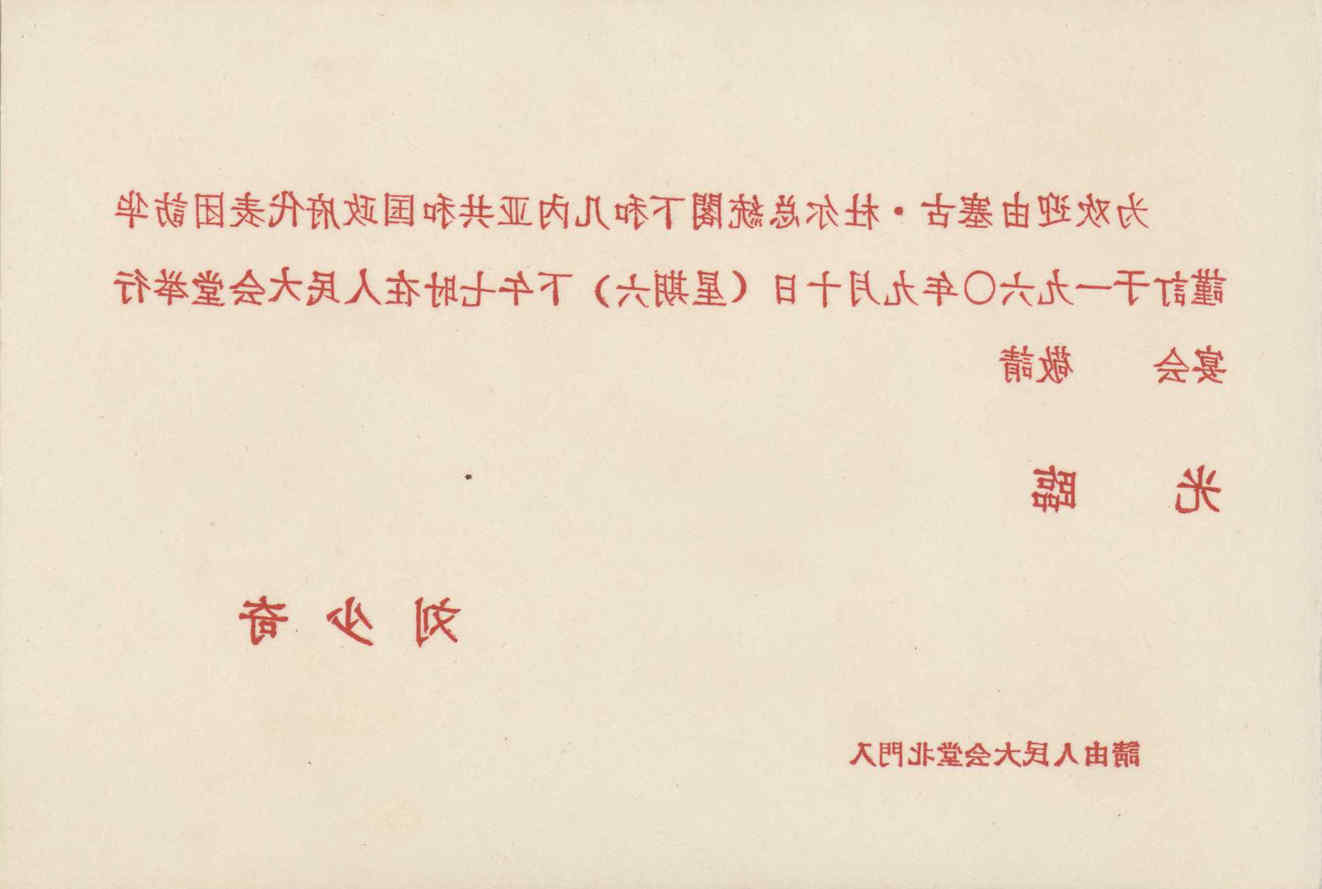 为欢迎由塞古·杜尔总統閣下和几内亚共和国政府代表团訪华
謹訂于一九六〇年九月十日（星期六）下午七时在人民大会堂举行
宴会　　敬請
光　　臨
刘 少 奇
請由人民大会堂北門入